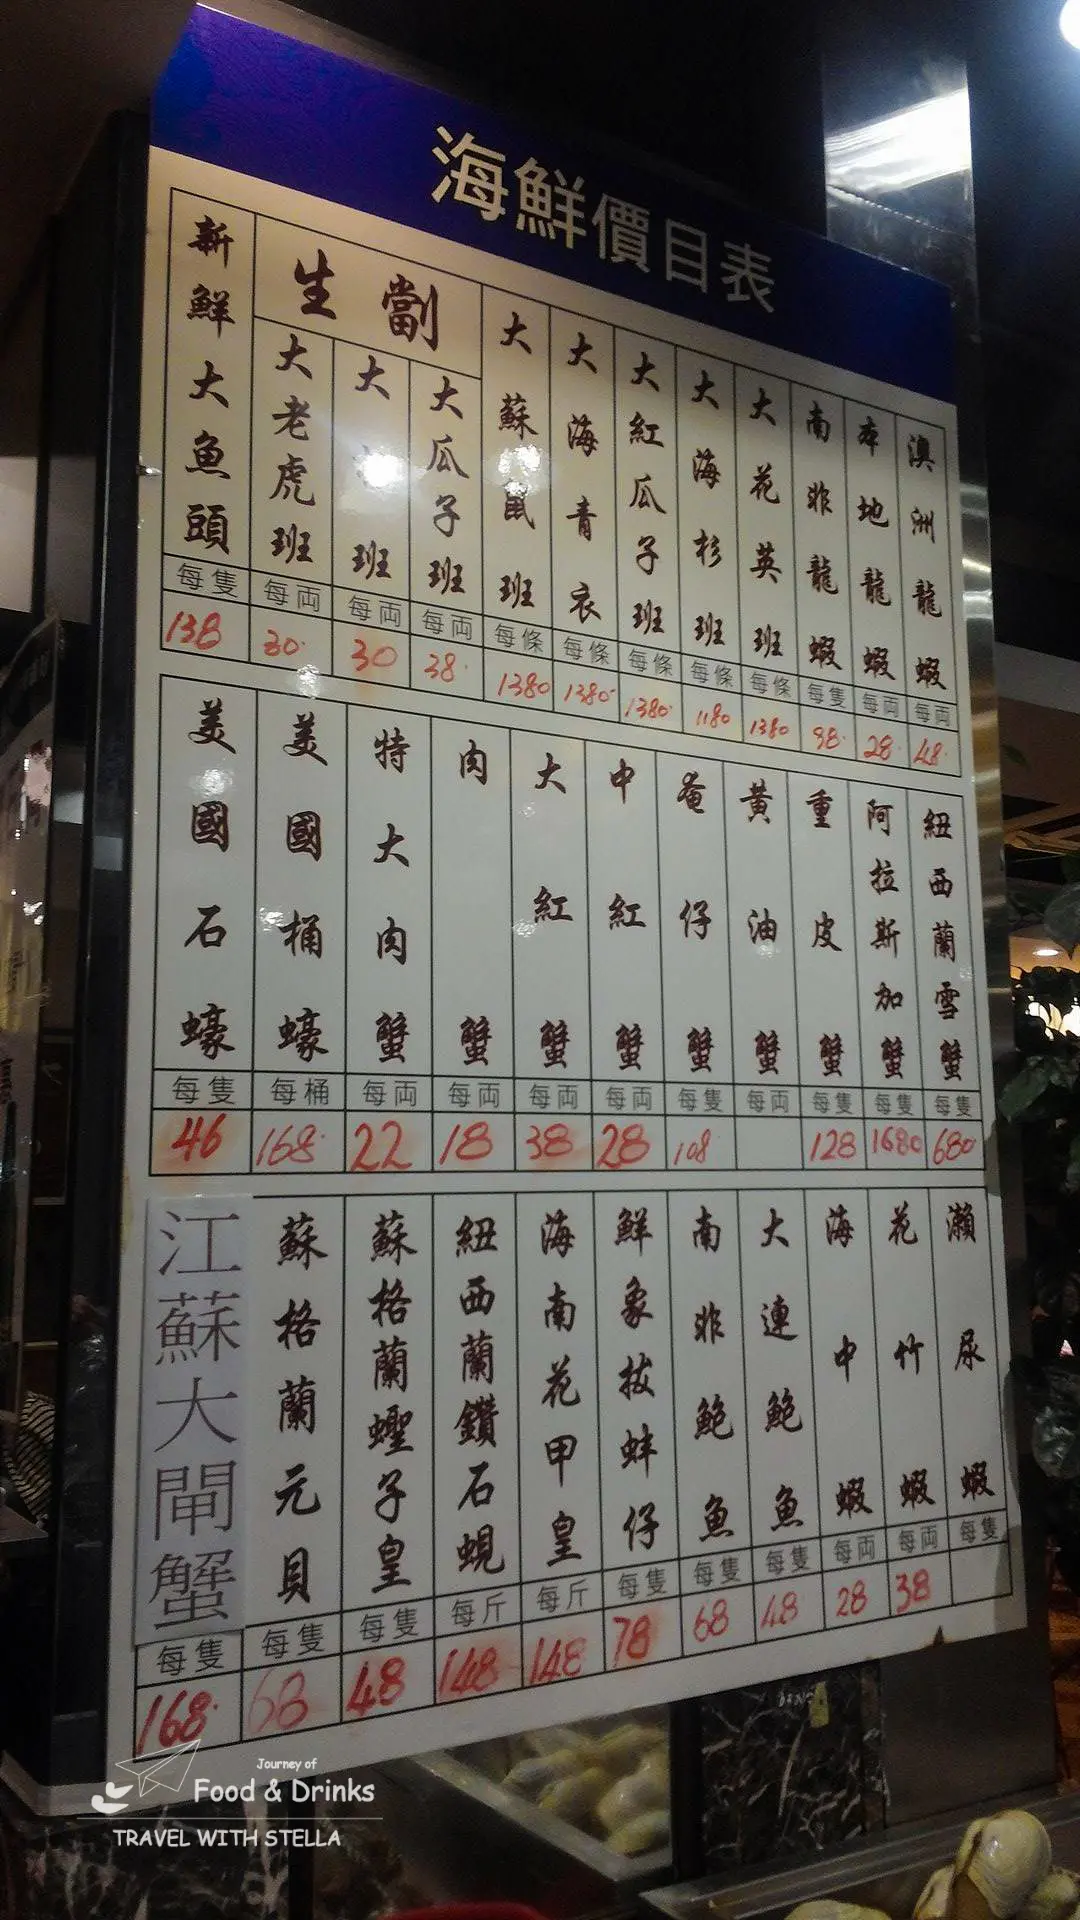 海鮮價目表
新鮮大魚頭
每隻
138
生劏
大老虎班
每両
30.
大班
每両
30
大瓜子班
每両
38.
大蘇鼠班
每條
1380
大海青衣
每條
1380.
大紅瓜子班
每條
1380.
大海杉班
每條
1180
大花英班
每條
1380
南非龍蝦
每隻
98.
本地龍蝦
每両
28.
澳洲龍蝦
每両
48.
美國石蠔
每隻
46
美國桶蠔
每桶
168.
特大肉蟹
每両
22
肉蟹
每両
18
大紅蟹
每両
38
中紅蟹
每両
28
奄仔蟹
每隻
108
黃油蟹
每両
重皮蟹
每隻
128
阿拉斯加蟹
每隻
1680
紐西蘭雪蟹
每隻
680.
江蘇大閘蟹
每隻
168.
蘇格蘭元貝
每隻
68
蘇格蘭蟶子皇
每隻
48
紐西蘭鑽石蜆
每斤
148
海南花甲皇
每斤
148
鮮象拔蚌仔
每隻
78
南非鮑魚
每隻
68
大連鮑魚
每隻
48
海中蝦
每両
28
花竹蝦
每両
38
瀨尿蝦
每隻
Journey of
Food & Drinks
TRAVEL WITH STELLA